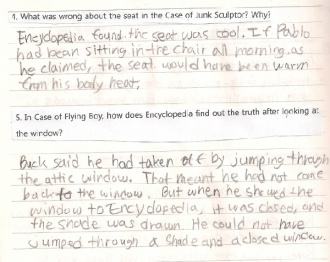 4. What was wrong about the seat in the Case of Junk Sculptor? Why?
Encyclopedia found the seat was cool. If Pablo
had been sitting in the chair all morning, as
he claimed, the seat would have been warm
from his body heat.
5. In Case of Flying Boy, how does Encyclopedia find out the truth after looking at
the window?
Buck said he had taken off by jumping through
the attic window. That meant he had not come
back to the window. But when he showed the
window to Encyclopedia, it was closed, and
the shade was drawn. He could not have
jumped through a shade and a closed window.